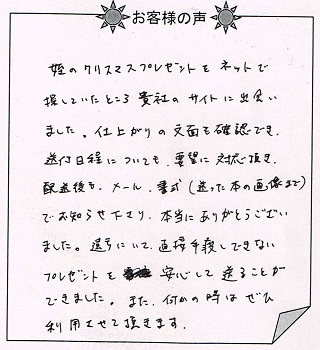 お客様の声
姪のクリスマスプレゼントをネットで
探していたところ貴社のサイトに出会い
ました。仕上がりの文面も確認でき、
送付日程についても、要望に対応頂き、
配送後も、メール、書式(送った本の画像まで)
でお知らせ下り、本当にありがとうござい
ました。遠方にいて、直接手渡しできない
プレゼントを安心して送ることが
できました。また、何かの時はぜひ
利用させて頂きます。